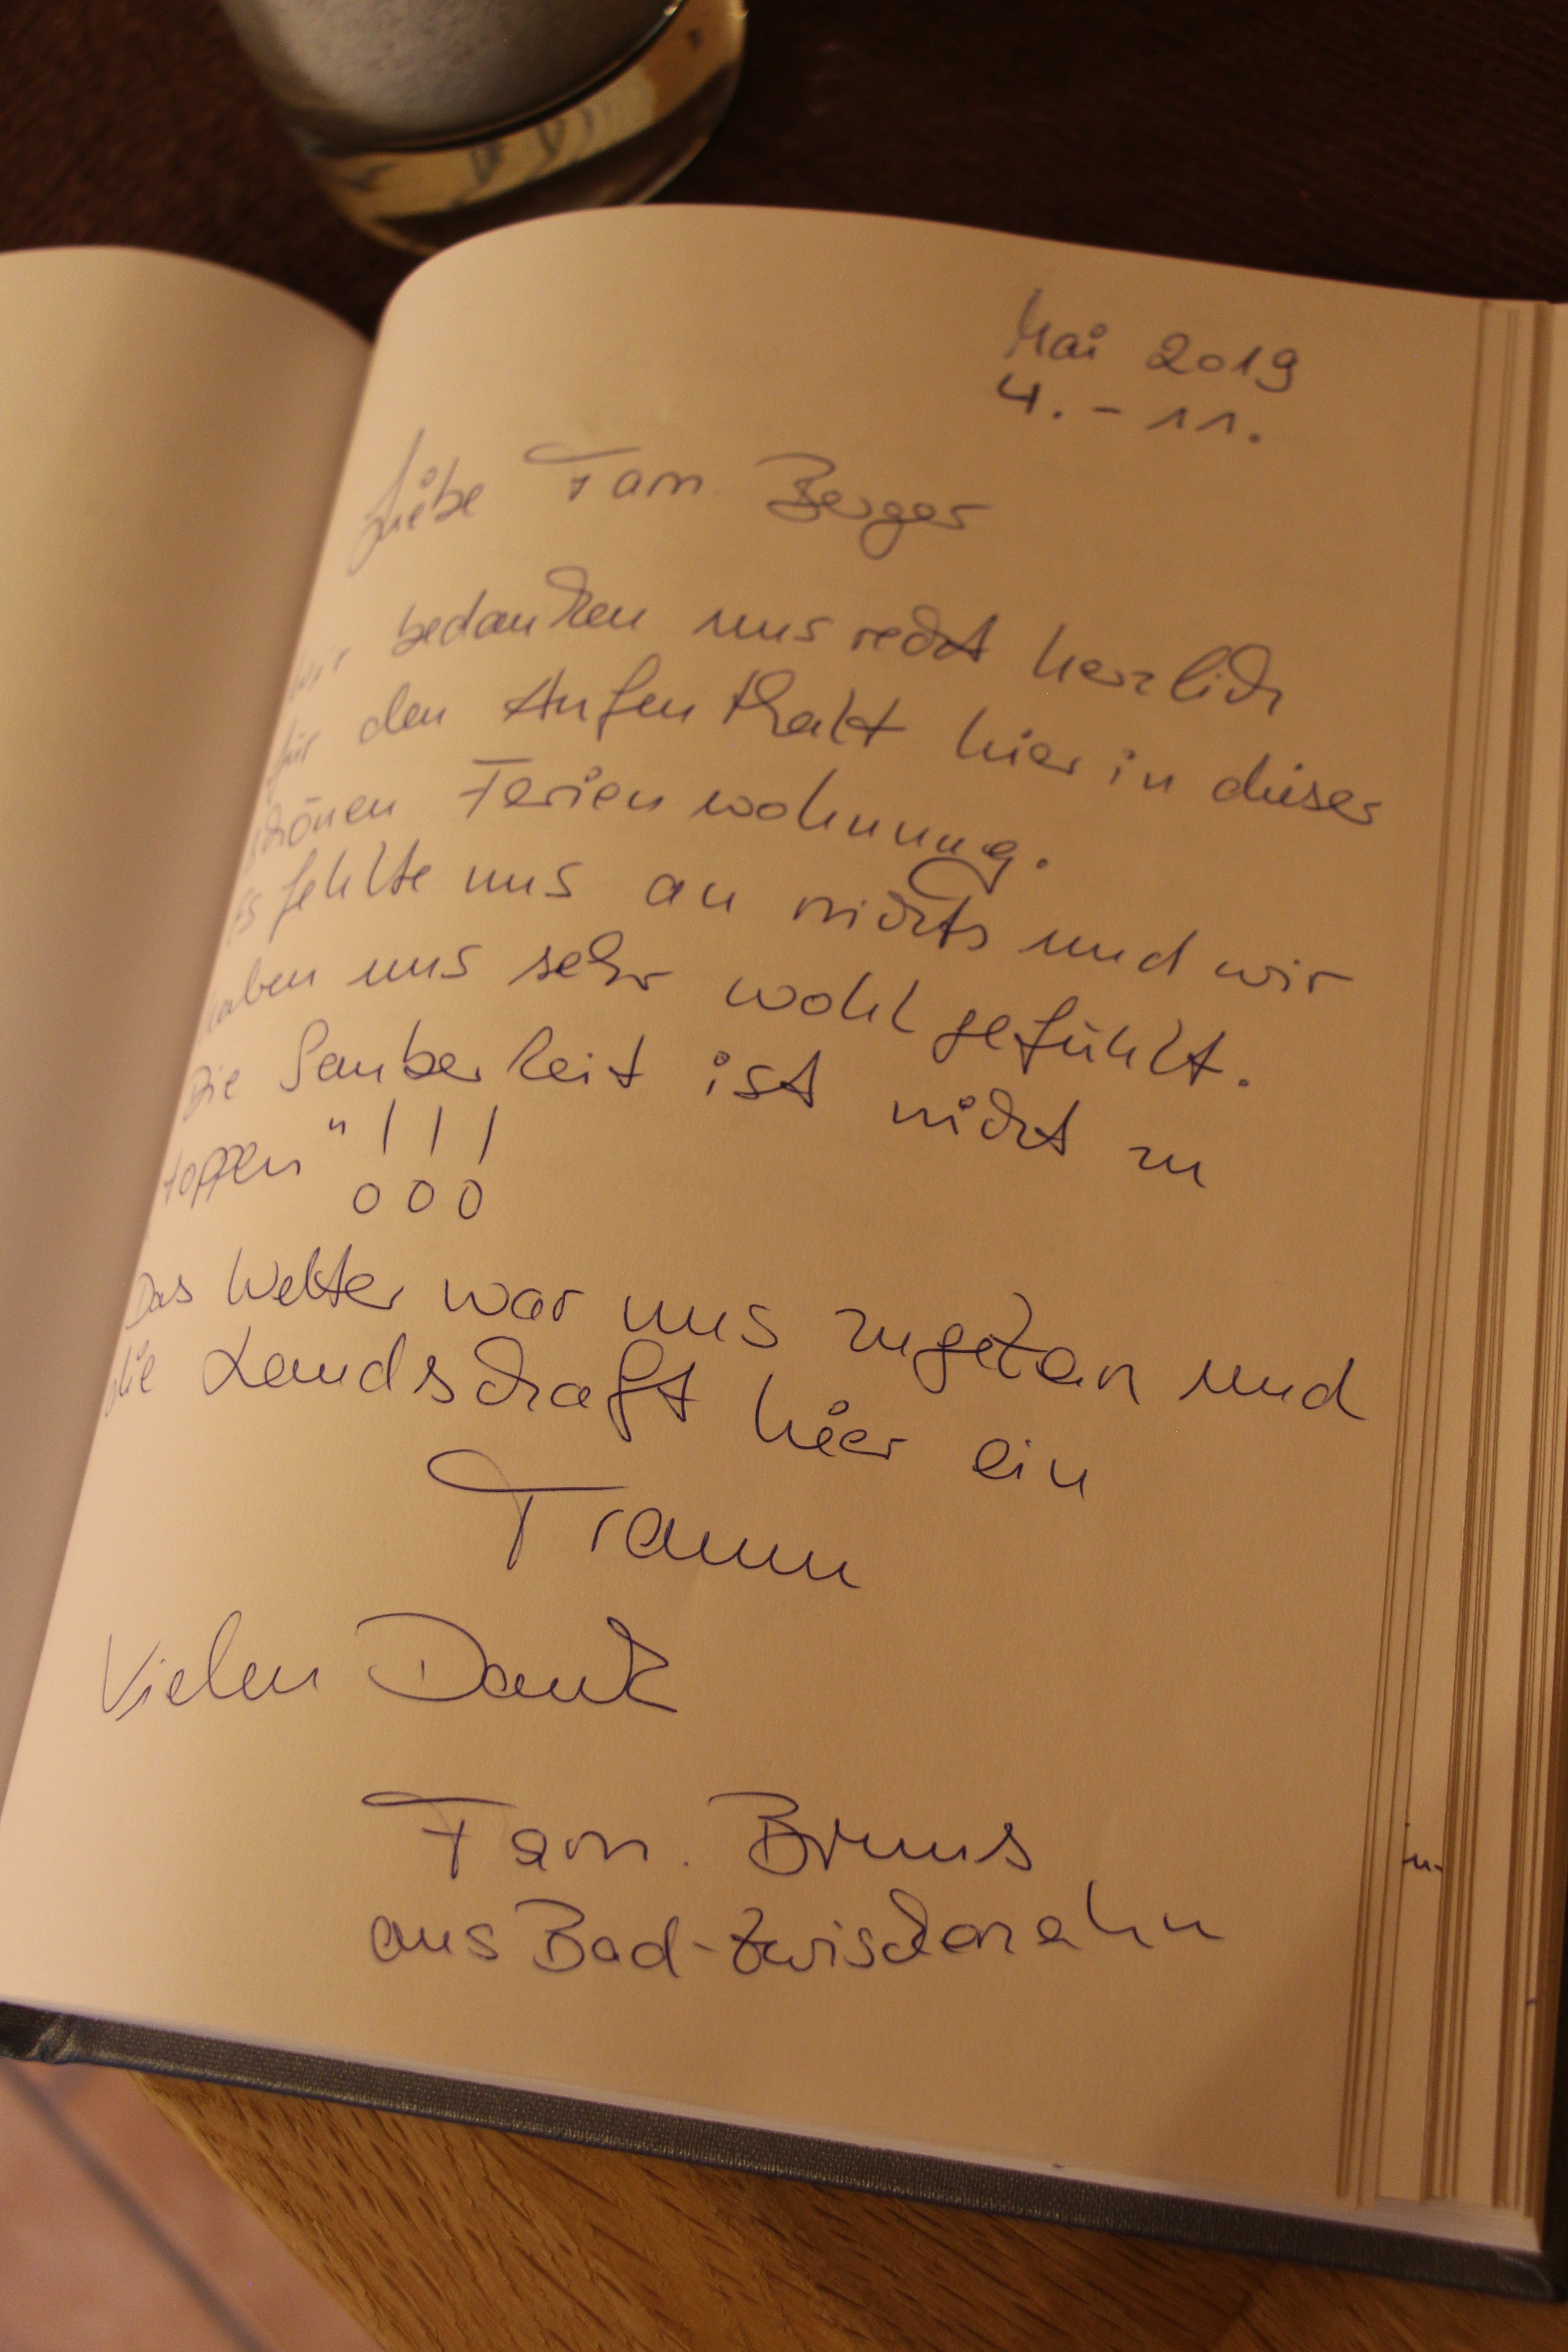 Mai 2019
4. - 11.
Liebe Fam. Berger
wir bedanken uns recht herzlich
für den Aufenthalt hier in dieser
schönen Ferienwohnung.
Es fehlte uns an nichts und wir
haben uns sehr wohl gefühlt.
Die Sauberkeit ist nicht zu
toppen " ! ! !
Das Wetter war uns zugetan und
die Landschaft hier ein
Traum
Vielen Dank
Fam. Bruns
aus Bad-Zwischenahn